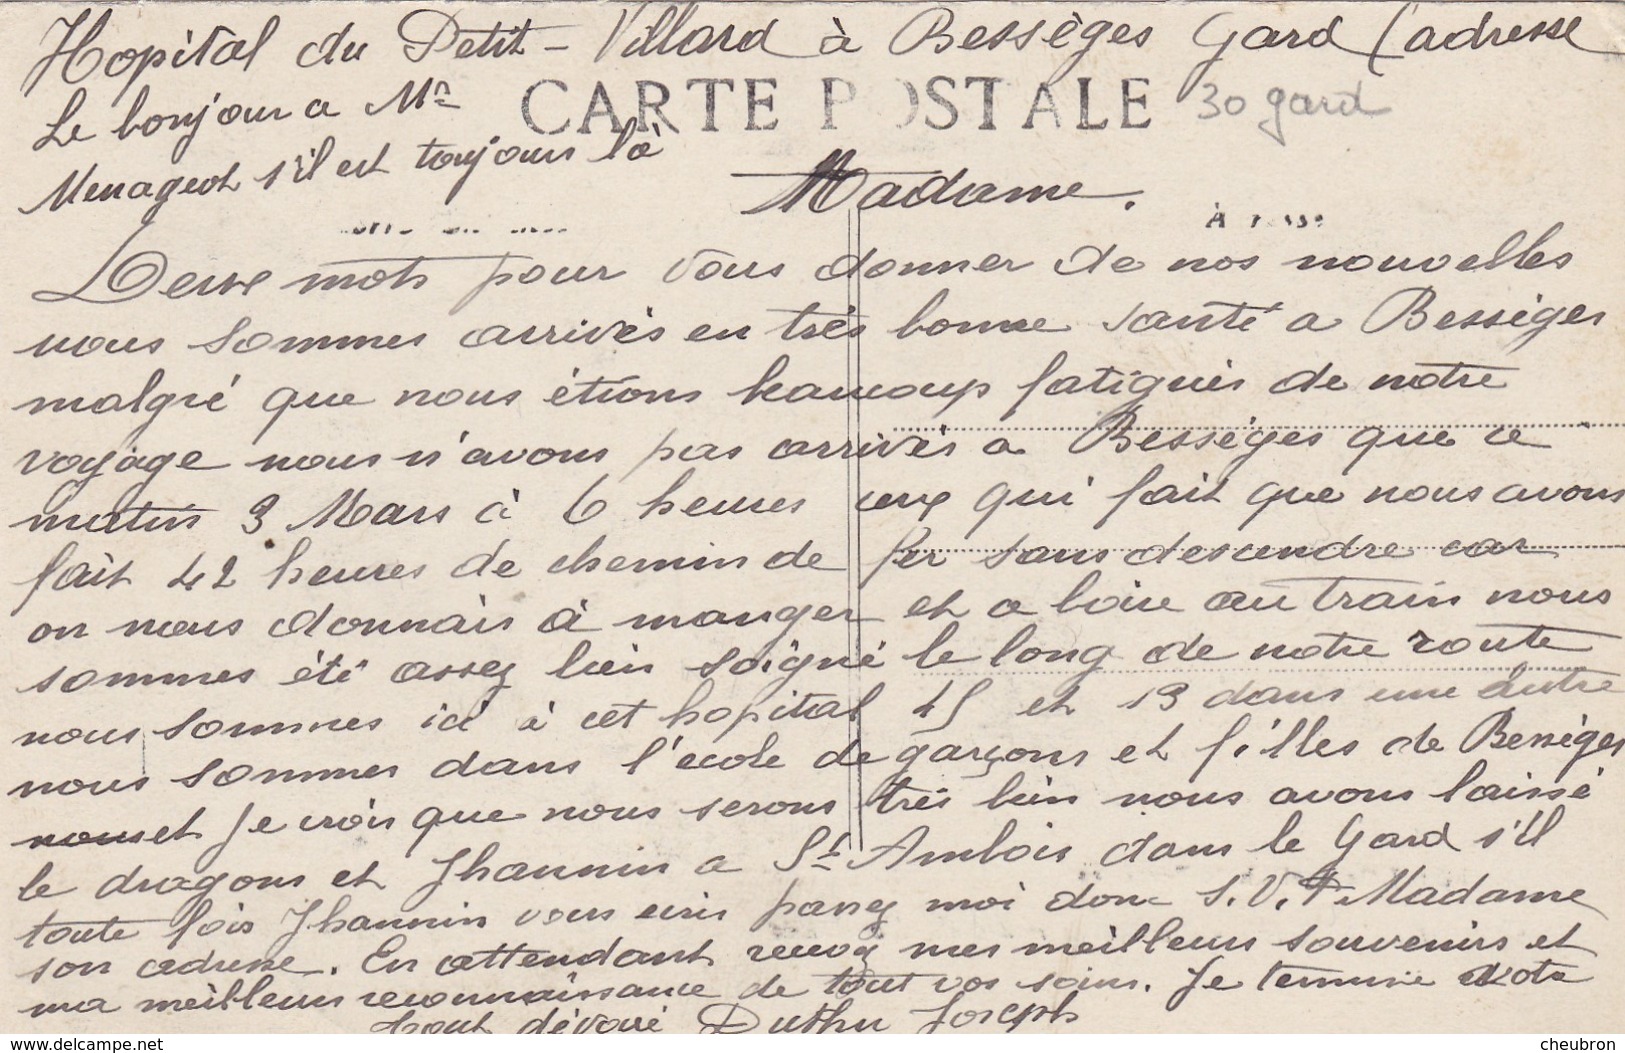 Hopital du Petit-Villard à Bessèges Gard (adresse
CARTE POSTALE
30 gard
Le bonjour a Mr
Menageot s'il est toujours là
Madame.
Deux mots pour vous donner de nos nouvelles
nous sommes arrivés en très bonne santé a Bessèges
malgré que nous étions beaucoup fatigués de notre
voyage nous n'avons pas arrivés a Bessèges que ce
matin 3 Mars à 6 heures ceux qui fait que nous avons
fait 42 heures de chemin de fer sans descendre car
on nous donnais à manger et a boire au train nous
sommes été assez bien soigné le long de notre route
nous sommes ici à cet hopital 45 et 13 dans une autre
nous sommes dans l'école de garçons et filles de Bessèges
et Je crois que nous serons très bien nous avons laissé
le dragons et Jhannin a St Ambois dans le Gard s'il
toute fois Jhannin vous ecris passez moi donc S.V.P Madame
son adresse. En attendant recevez mes meilleurs souvenirs et
ma meilleurs reconnaissance de tout vos soins. Je termine votre
tout dévoué Duthu Joseph
www.delcampe.net
cheubron